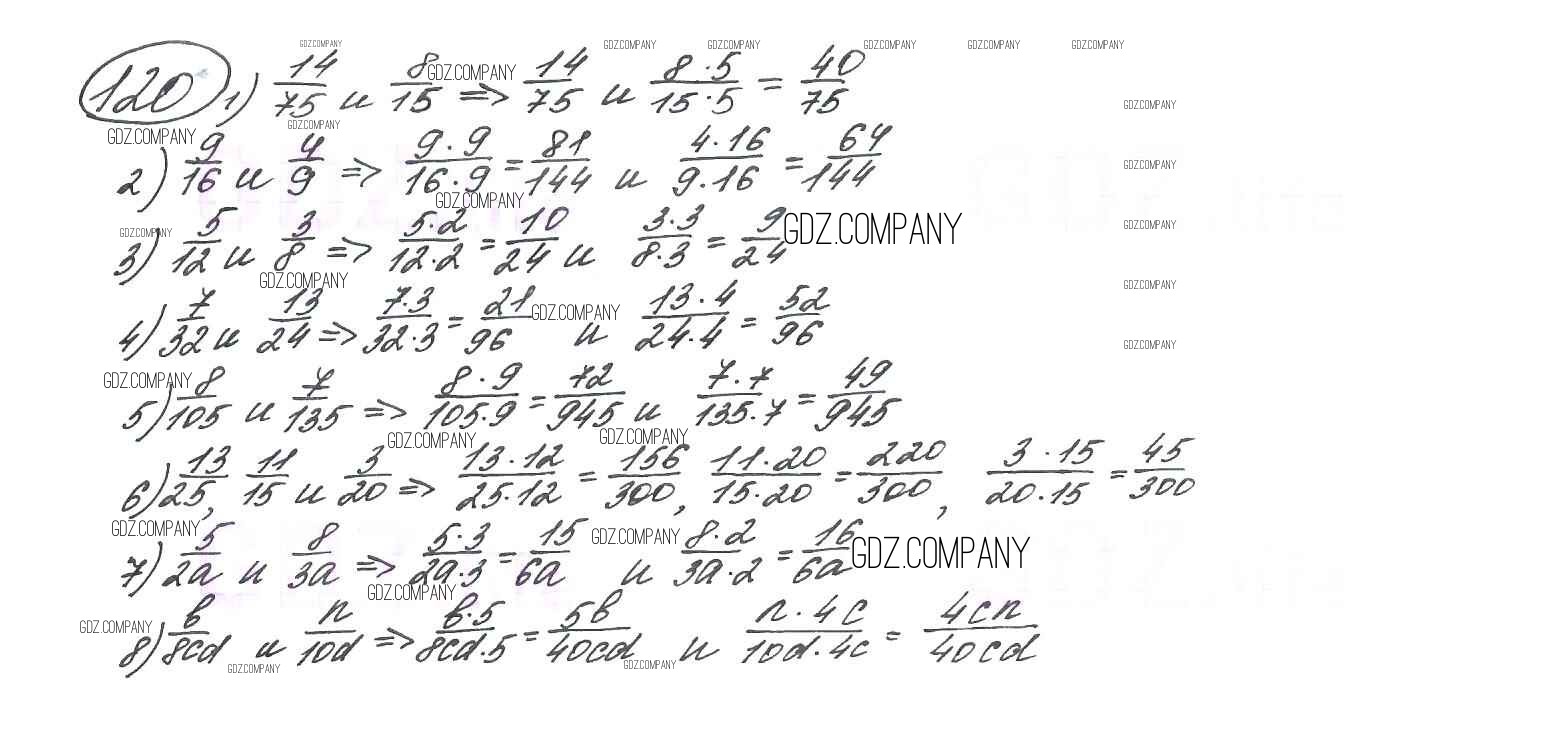 120 1) 14/75 и 8/15 => 14/75 и 8·5/15·5 = 40/75
2) 9/16 и 4/9 => 9·9/16·9 = 81/144 и 4·16/9·16 = 64/144
3) 5/12 и 3/8 => 5·2/12·2 = 10/24 и 3·3/8·3 = 9/24
4) 7/32 и 13/24 => 7·3/32·3 = 21/96 и 13·4/24·4 = 52/96
5) 8/105 и 7/135 => 8·9/105·9 = 72/945 и 7·7/135·7 = 49/945
6) 13/25, 11/15 и 3/20 => 13·12/25·12 = 156/300, 11·20/15·20 = 220/300, 3·15/20·15 = 45/300
7) 5/2a и 8/3a => 5·3/2a·3 = 15/6a и 8·2/3a·2 = 16/6a
8) b/8cd и n/10d => b·5/8cd·5 = 5b/40cd и n·4c/10d·4c = 4cn/40cd
GDZ.COMPANY